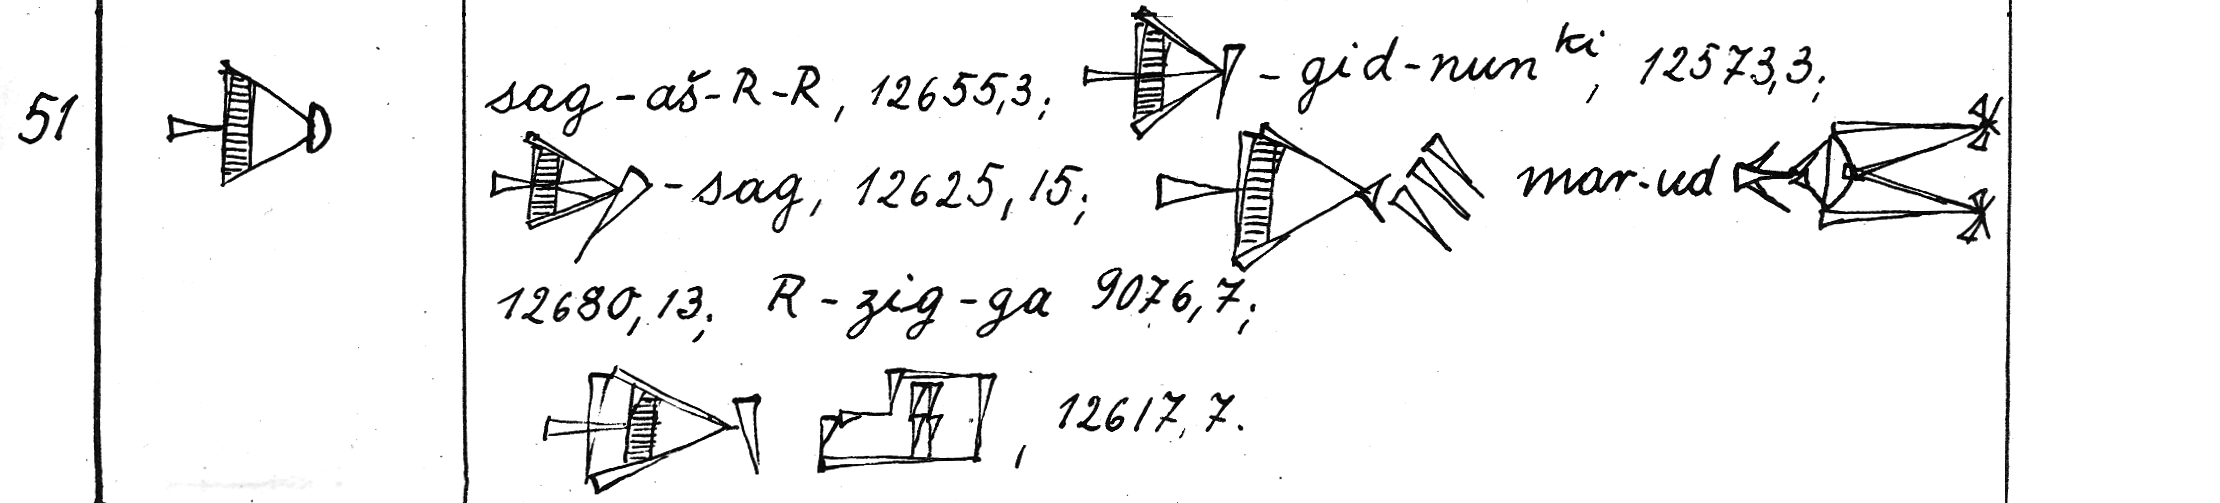 51
sag-aš-R-R, 12655,3; -gid-nun ki, 12573,3;
-sag, 12625,15; mar-ud
12680,13; R-zig-ga 9076,7;
, 12617,7.